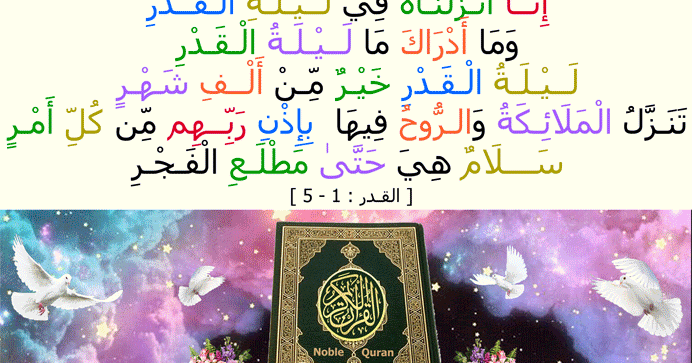 إِنَّا أَنْزَلْنَاهُ فِي لَـيْـلَـةِ الْـقَـدْرِ
وَمَا أَدْرَاكَ مَا لَـيْـلَـةُ الْـقَـدْرِ
لَـيْـلَـةُ الْـقَـدْرِ خَـيْـرٌ مِّـنْ أَلْـفِ شَـهْـرٍ
تَنَـزَّلُ الْمَلَائِـكَةُ وَالـرُّوحُ فِيهَا بِإِذْنِ رَبِّـهِم مِّن كُلِّ أَمْـرٍ
سَـــلَامٌ هِيَ حَتَّىٰ مَطْلَـعِ الْفَـجْـرِ
[ القـدر : 1 - 5 ]
القرآن الكريم
Noble Quran